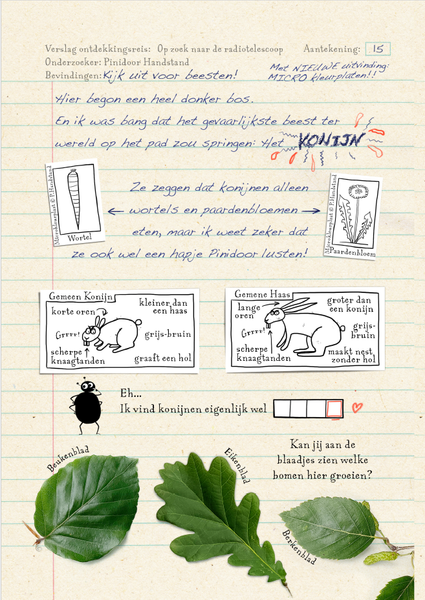 Verslag ontdekkingsreis: Op zoek naar de radiotelescoop Aantekening: 15
Onderzoeker: Pinidoor Handstand
Bevindingen: Kijk uit voor beesten!
Met NIEUWE uitvinding:
MICRO kleurplaten!!
Hier begon een heel donker bos.
En ik was bang dat het gevaarlijkste beest ter
wereld op het pad zou springen: Het KONIJN
Ze zeggen dat konijnen alleen
wortels en paardenbloemen
eten, maar ik weet zeker dat
ze ook wel een hapje Pinidoor lusten!
Microkleurplaat © P.Handstand
Wortel
Microkleurplaat © P.Handstand
Paardenbloem
Gemeen Konijn
korte oren
kleiner dan
een haas
Grrrr!
grijs-
bruin
scherpe
knaagtanden
graaft een hol
Gemene Haas
lange
oren
groter dan
een konijn
Grrrr!
grijs-
bruin
scherpe
knaagtanden
maakt nest
zonder hol
Eh...
Ik vind konijnen eigenlijk wel
Kan jij aan de
blaadjes zien welke
bomen hier groeien?
Beukenblad
Eikenblad
Berkenblad